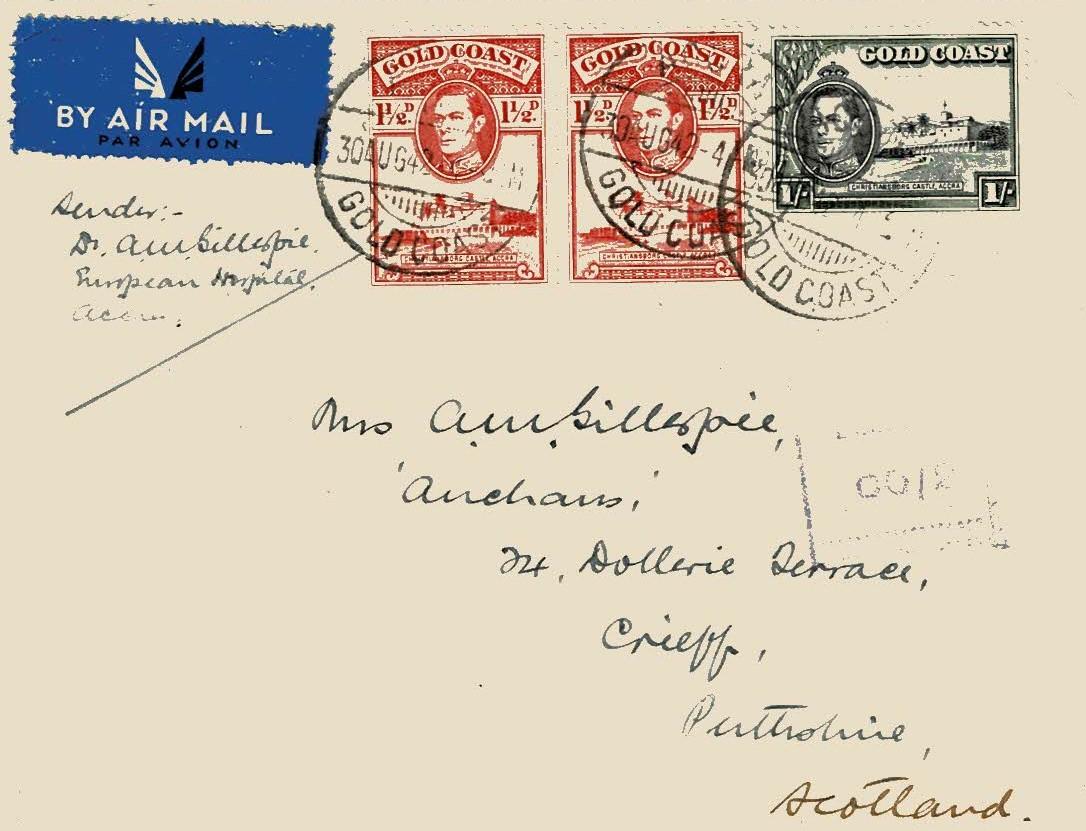 BY AIR MAIL
PAR AVION
GOLD COAST
1½D. 1½D.
CHRISTIANSBORG CASTLE, ACCRA
GOLD COAST
1½D. 1½D.
CHRISTIANSBORG CASTLE, ACCRA
GOLD COAST
CHRISTIANSBORG CASTLE, ACCRA
1/- 1/-
30 AUG 42
GOLD COAST
30 AUG 42
GOLD COA
GOLD COAST
Sender:-
Dr. A.M. Gillespie.
European Hospital.
Accra.
Mrs A.M. Gillespie,
74, Dollerie Terrace,
Crieff,
Perthshire,
Scotland.